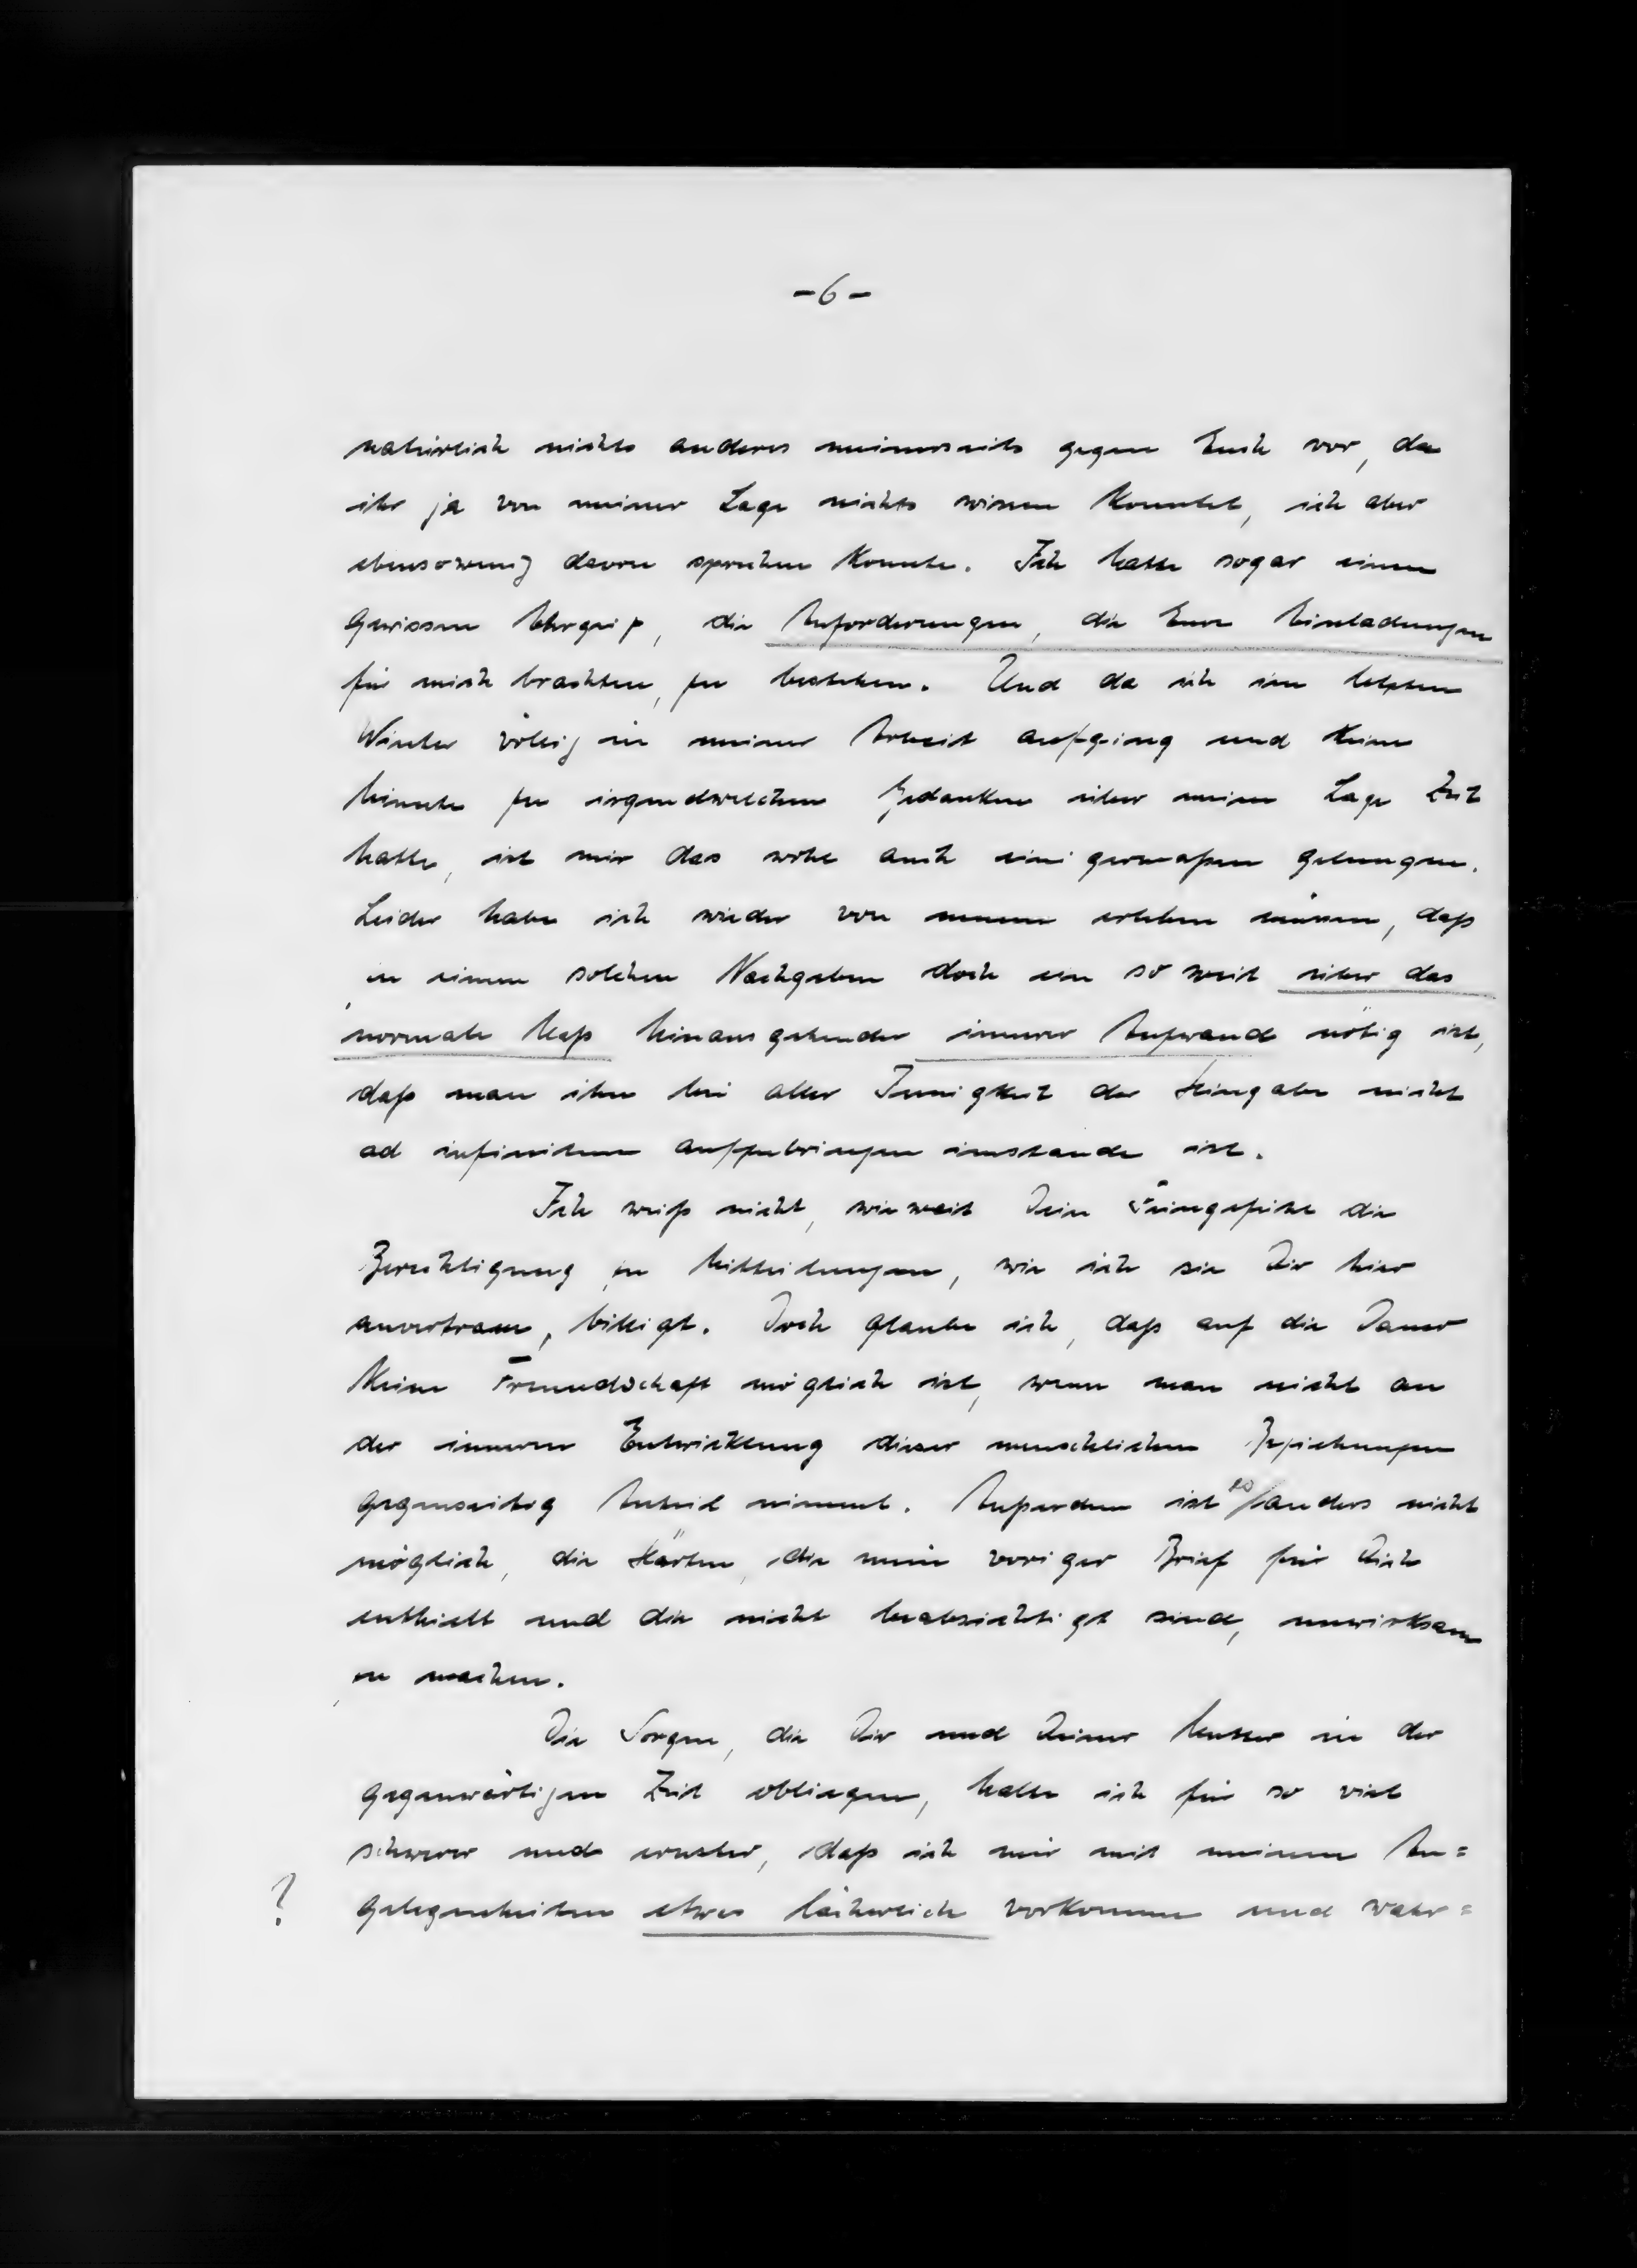 -6-
natürlich nichts anderes meinerseits gegen Euch vor, da
ihr ja von meiner Lage nichts wissen konntet, ich aber
ebensowenig davon sprechen konnte. Ich hatte sogar einen
gewissen Ehrgeiz, die Anforderungen, die Eure Einladungen
für mich brachten, zu bestehen. Und da ich im letzten
Winter völlig in meiner Arbeit aufging und keine
Minute zu irgendwelchen Gedanken über meine Lage Zeit
hatte, ist mir das wohl auch einigermaßen gelungen.
Leider habe ich wieder von neuem erleben müssen, daß
zu einem solchen Nachgeben doch ein so weit über das
normale Maß hinausgehender innerer Aufwand nötig ist,
daß man ihn bei aller Innigkeit der Hingabe nicht
ad infinitum aufzubringen imstande ist.
Ich weiß nicht, wieweit Dein Feingefühl die
Berechtigung zu Mitteilungen, wie ich sie Dir hier
anvertraue, billigt. Doch glaube ich, daß auf die Dauer
keine Freundschaft möglich ist, wenn man nicht an
der inneren Entwicklung dieser menschlichen Beziehungen
gegenseitig Anteil nimmt. Außerdem ist es anders nicht
möglich, die Härten, die mein voriger Brief für Dich
enthielt und die nicht beabsichtigt sind, unwirksam
zu machen.
Die Sorgen, die Dir und Deiner Mutter in der
gegenwärtigen Zeit obliegen, halte ich für so viel
schwerer und ernster, daß ich mir mit meinen An=
? gelegenheiten etwas lächerlich vorkomme und wahr=